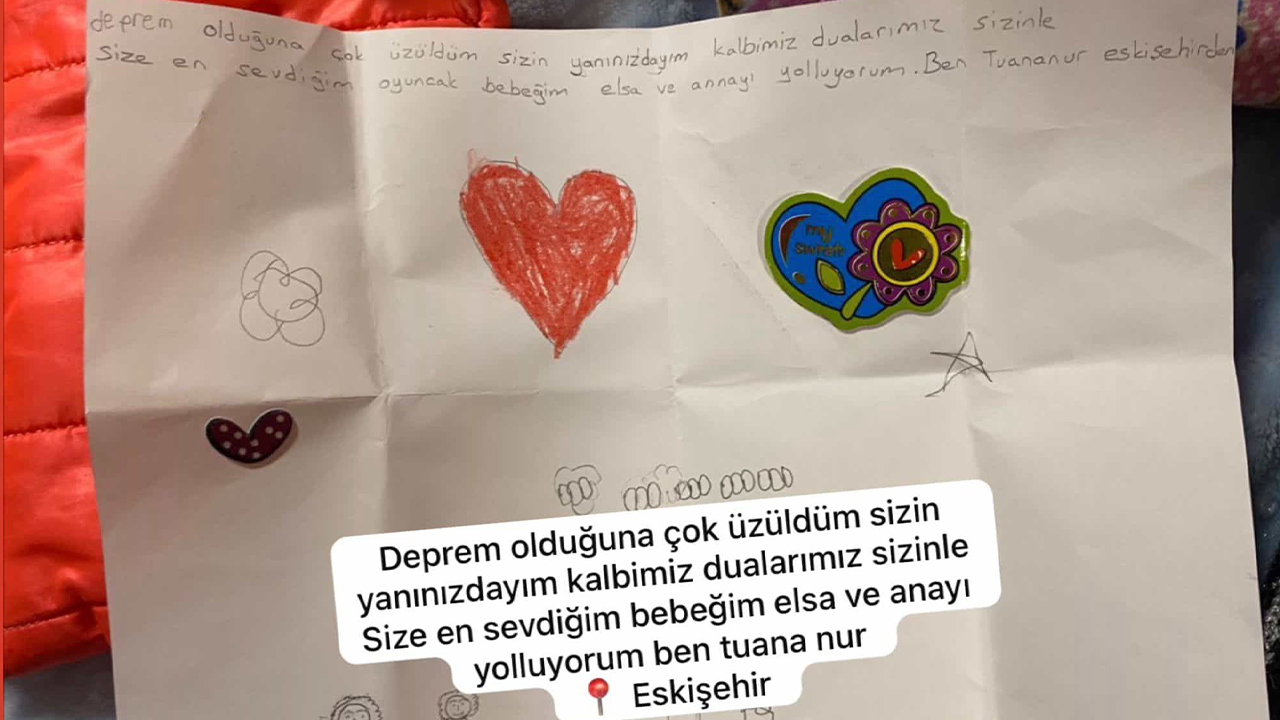 deprem olduğuna çok üzüldüm sizin yanınızdayım kalbimiz dualarımız sizinle
Size en sevdiğim oyuncak bebeğim elsa ve annayı yolluyorum. Ben Tuananur eskişehirden
my
Deprem olduğuna çok üzüldüm sizin
yanınızdayım kalbimiz dualarımız sizinle
Size en sevdiğim bebeğim elsa ve anayı
yolluyorum ben tuana nur
📍 Eskişehir